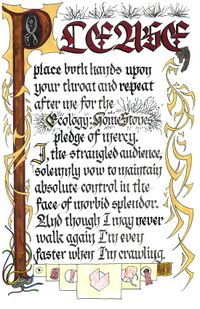 PLEASE
place both hands upon
your throat and repeat
after me for the
Ecology: HomeStones
pledge of mercy.
I, the strangled audience,
solemnly vow to maintain
absolute control in the
face of morbid splendor.
And though I may never
walk again I'm even
faster when I'm crawling.